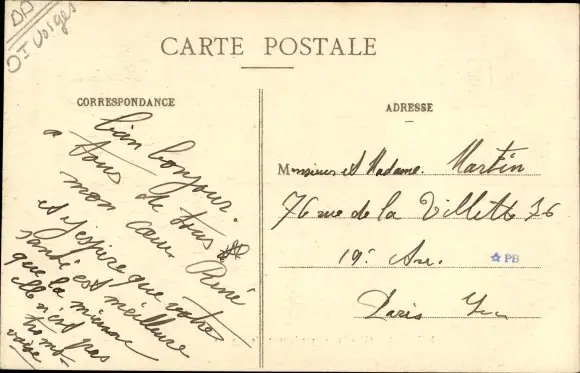 DD
OI Vosges
CARTE POSTALE
CORRESPONDANCE
ADRESSE
bien bonjour.
a tous de tous
mon cœur René
et j'espire que votre
santé est meilleure
que la mienne
elle n'est pas
tro mo-
vaise
Monsieur et Madame. Martin
76 rue de la Villette 76
19e. Arr.
PB
Paris